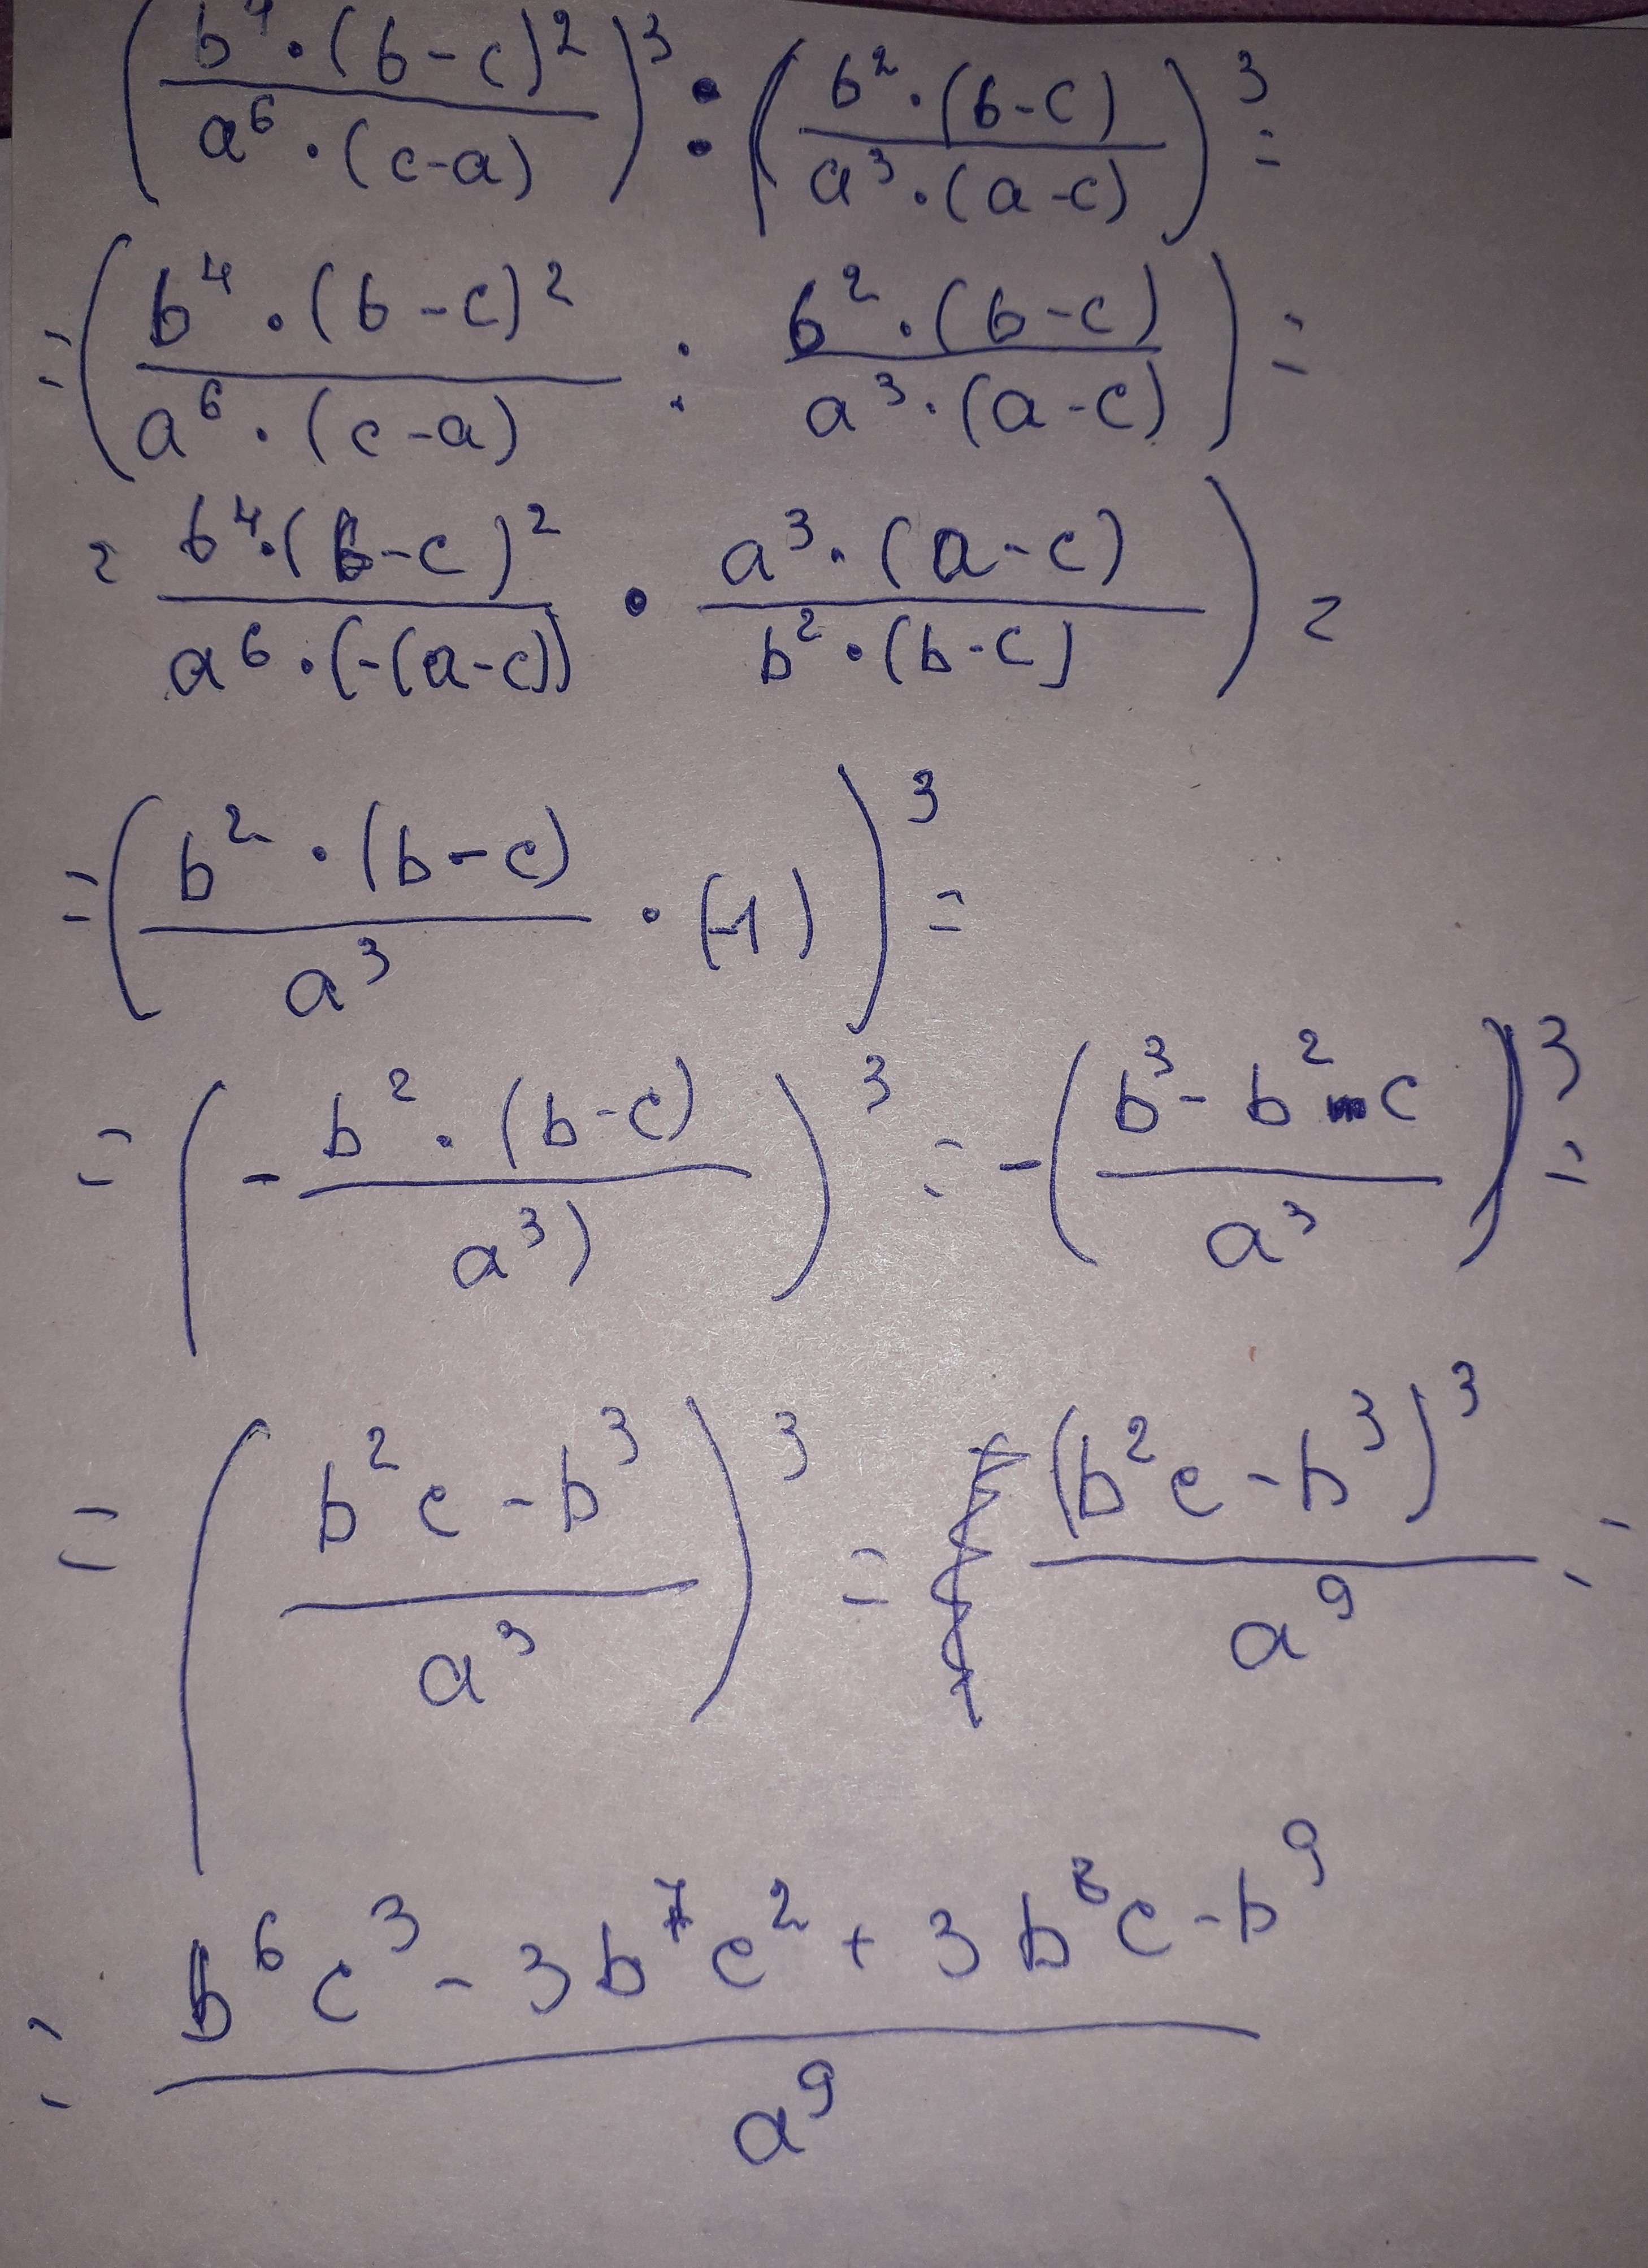 (b⁴·(b-c)²/a⁶·(c-a))³ : (b²·(b-c)/a³·(a-c))³ =
= (b⁴·(b-c)²/a⁶·(c-a) : b²·(b-c)/a³·(a-c)) =
= b⁴·(b-c)²/a⁶·(-(a-c)) · a³·(a-c)/b²·(b-c)) =
= (b²·(b-c)/a³ · (-1))³ =
= (- b²·(b-c)/a³))³ = -(b³-b²c/a³)³ =
= (b²c-b³/a³)³ = (b²c-b³)³/a⁹ =
= b⁶c³-3b⁷c²+3b⁸c-b⁹/a⁹